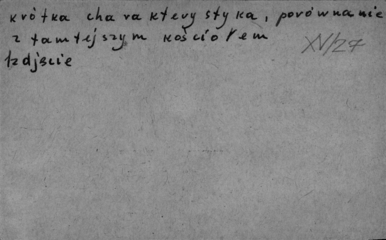 krótka charakterystyka, porównanie
z tamtejszym kościołem
XV/27
1zdjęcie